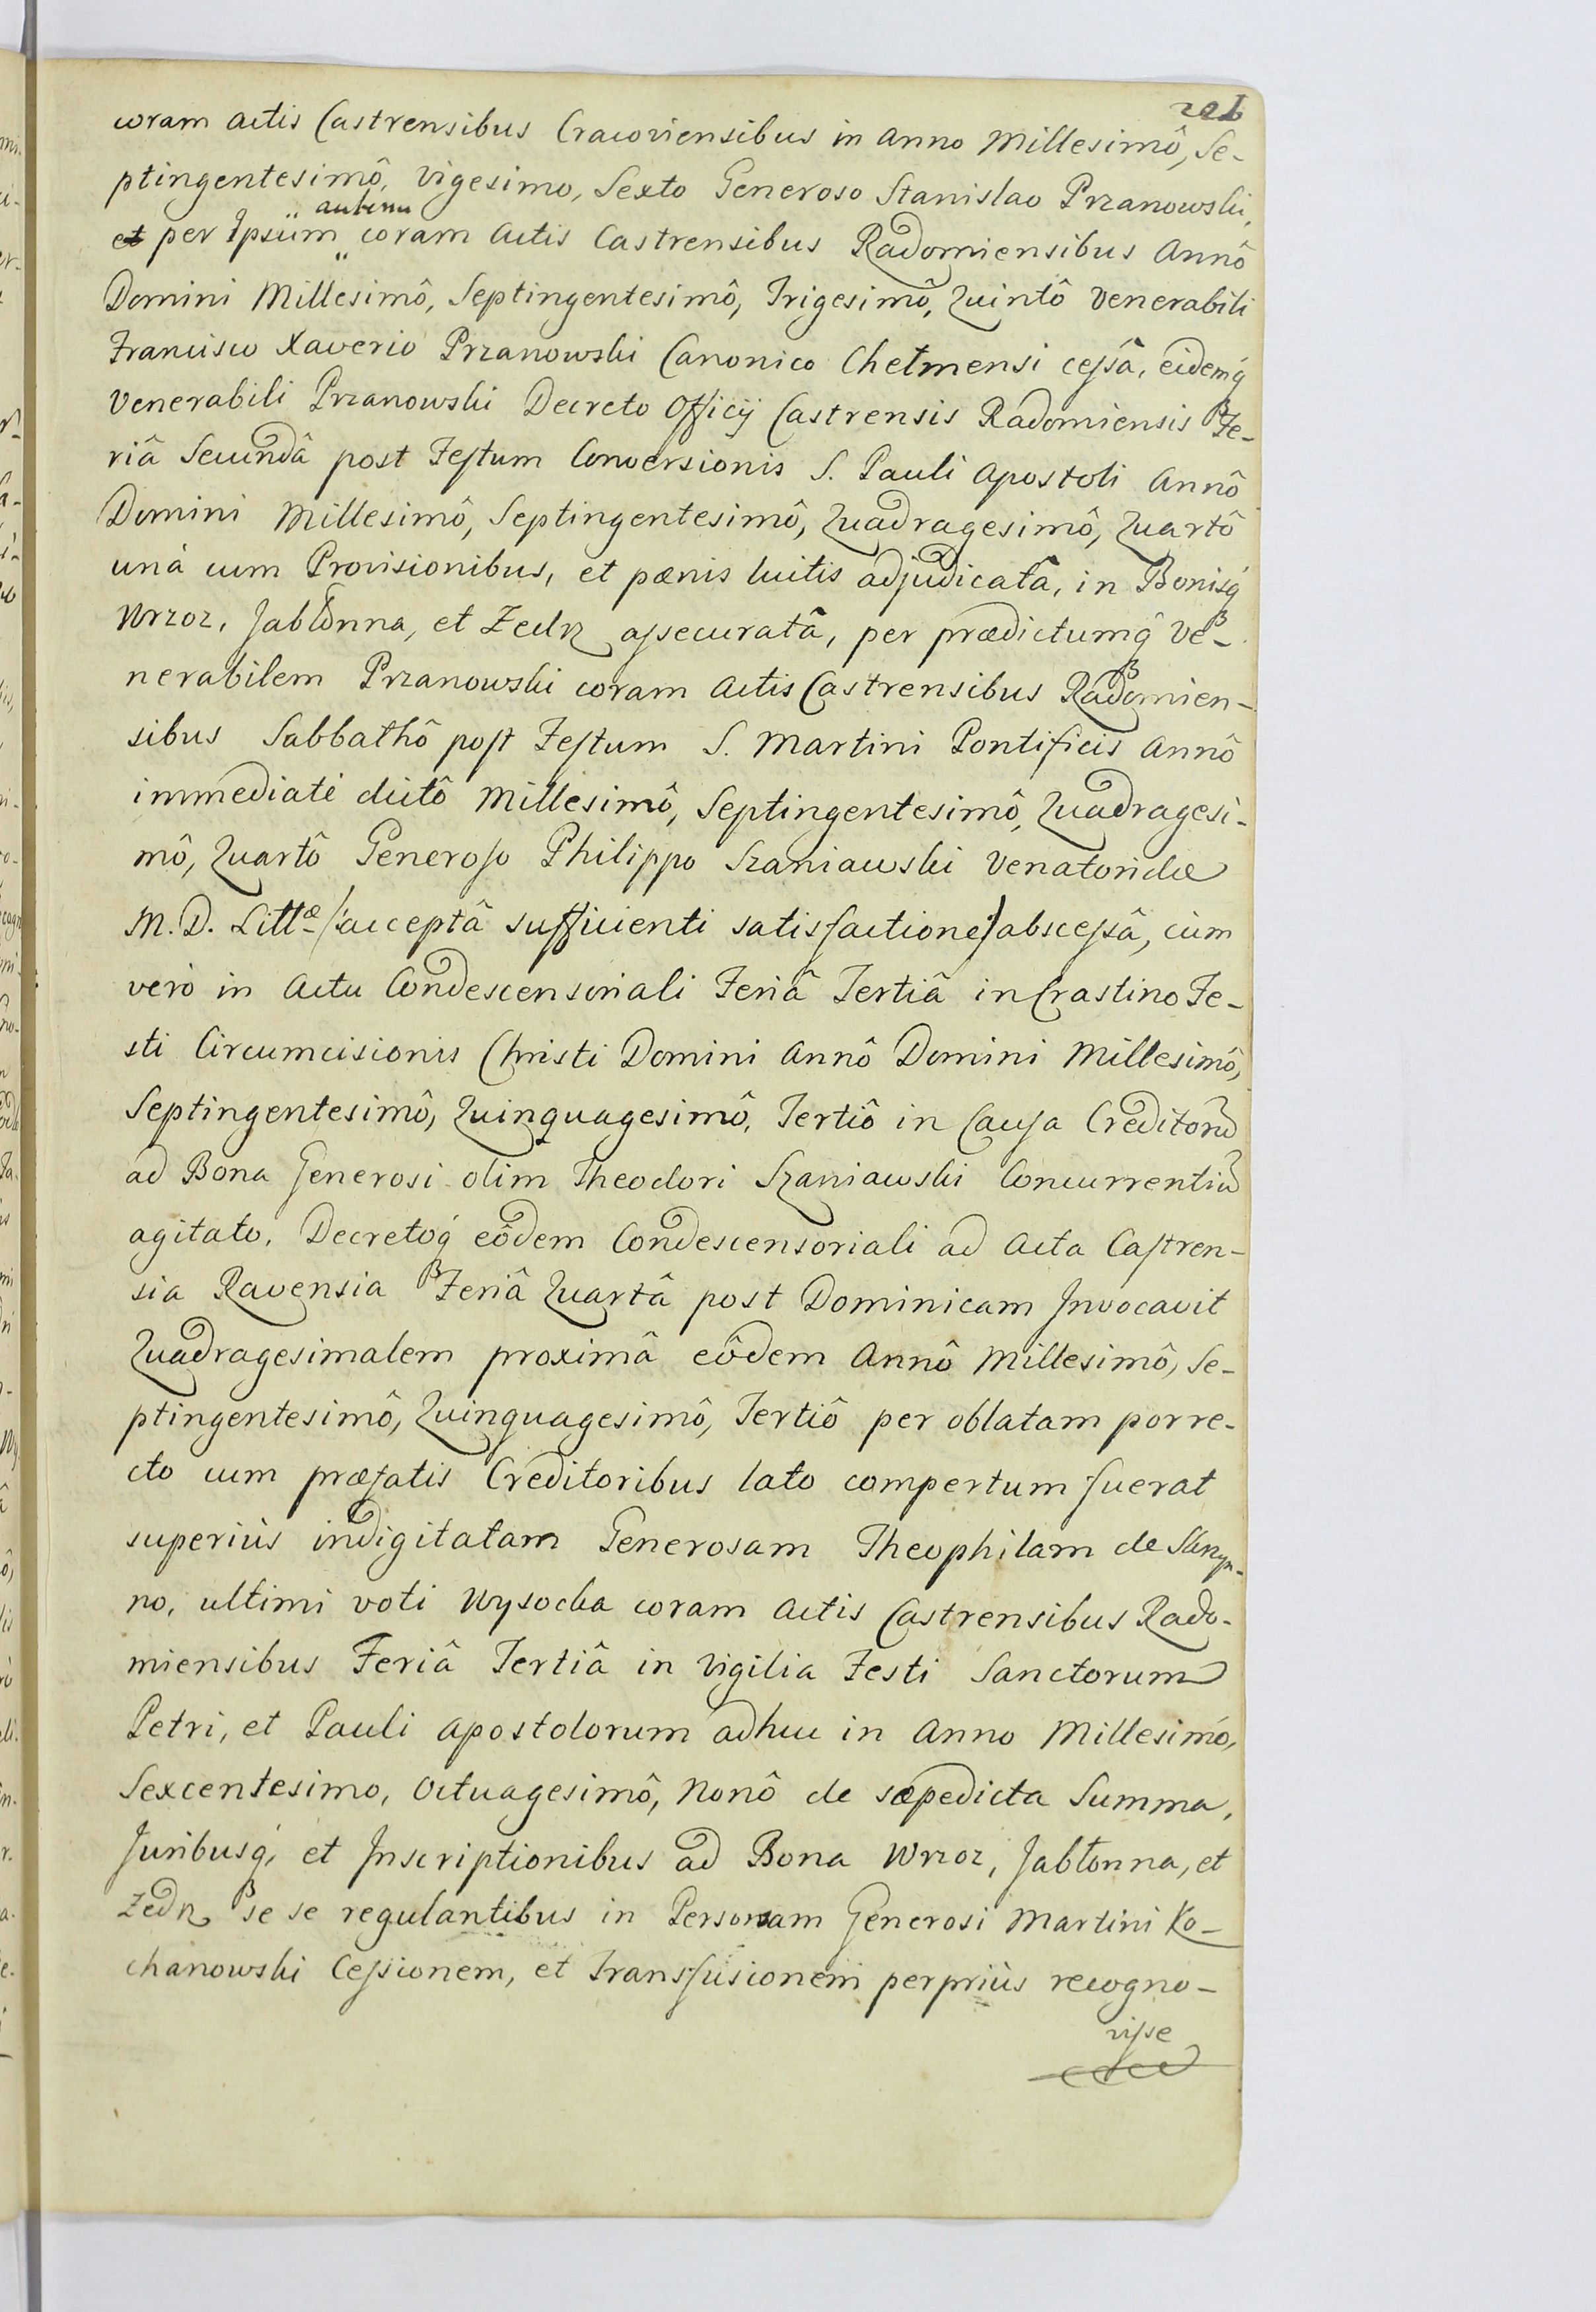 201
coram actis Castrensibus Cracoviensibus in Anno Millesimô, Se-
ptingentesimô, Vigesimo, Sexto Generoso Stanislao Przanowski,
autem
et per Ipsum coram Actis Castrensibus Radomiensibus Annô
Domini Millesimô, Septingentesimô, Trigesimô, Quintô Venerabili
Francisco Xaverio Przanowski Canonico Chełmensi cessâ, eidemq́
Venerabili Przanowski Decreto Officij Castrensis Radomiensis Fe-
riâ Secundâ post Festum Conversionis S. Pauli Apostoli Annô
Domini Millesimô, Septingentesimô, Quadragesimô, Quartô
unà cum Provisionibus, et pænis luitis adjudicatâ, in Bonisq́
Wrzoz, Jabłonna, et Zedrz assecuratâ, per prædictumq́ Ve-
nerabilem Przanowski coram Actis Castrensibus Radomien-
sibus Sabbathô post Festum S. Martini Pontificis Annô
immediatè dictô Millesimô, Septingentesimô, Quadragesi-
mô, Quartô Generoso Philippo Szaniawski Venatoridæ
M. D. Littæ /:acceptâ sufficienti satisfactione:/ abscessâ, cùm
verò in Actu Condescensoriali Feriâ Tertiâ in Crastino Fe-
sti Circumcisionis Christi Domini Annô Domini Millesimô,
Septingentesimô, Quinquagesimô, Tertiô in Causa Creditorũ
ad Bona Generosi olim Theodori Szaniawski Concurrentiũ
agitato, Decretoq́ eôdem Condescensoriali ad Acta Castren-
sia Ravensia Feriâ Quartâ post Dominicam Invocavit
Quadragesimalem proximâ eôdem Annô Millesimô, Se-
ptingentesimô, Quinquagesimô, Tertiô per oblatam porre-
cto cum præfatis Creditoribus lato compertum fuerat
superiùs indigitatam Generosam Theophilam de
no, ultimi voti Wysocka coram Actis Castrensibus Rado-
miensibus Feriâ Tertiâ in Vigilia Festi Sanctorum
Petri, et Pauli Apostolorum adhuc in Anno Millesimo,
Sexcentesimo, Octuagesimô, Nonô de sæpedicta Summa,
Juribusq́, et Inscriptionibus ad Bona Wrzoz, Jabłonna, et
Zedrz se se regulantibus in Personam Generosi Martini Ko-
chanowski Cessionem, et Transfusionem perpriùs recogno-
visse